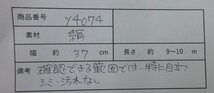 商品番号 Y4074
素材 絹
幅 約 37 cm 長さ 約 9～10 m
備考 確認できる範囲では、特に目立つ
シミ・汚れなし